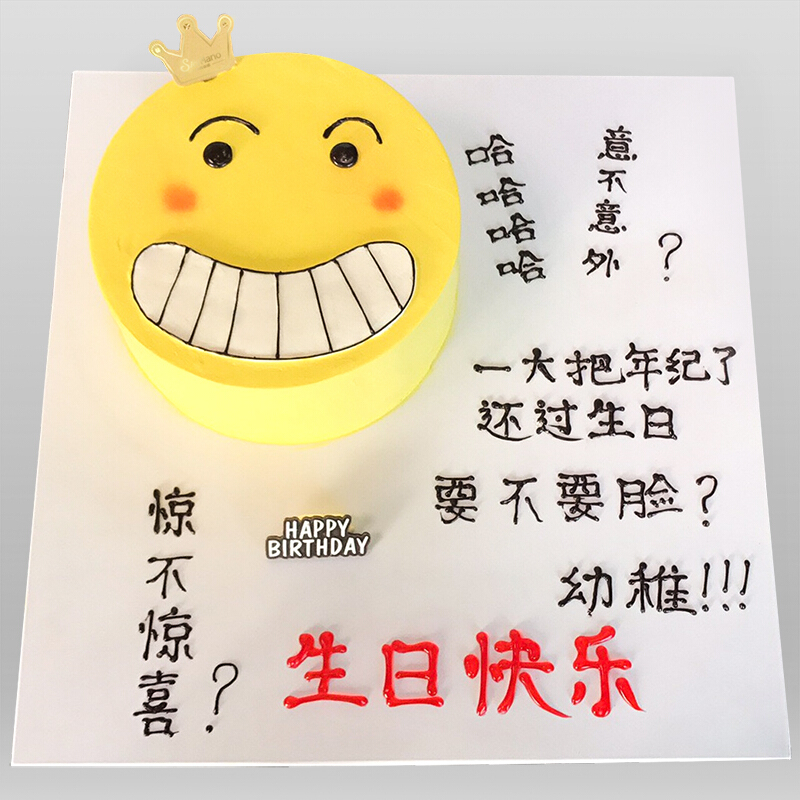 哈哈哈哈
意不意外？
一大把年纪了
还过生日
要不要脸？
幼稚!!!
惊不惊喜？
HAPPY
BIRTHDAY
生日快乐